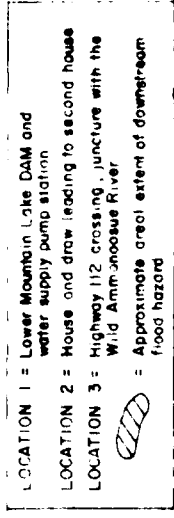 LOCATION 1 = Lower Mountain Lake DAM and
water supply pump station
LOCATION 2 = House and draw leading to second house
LOCATION 3 = Highway 112 crossing, juncture with the
Wild Ammonoosuc River
= Approximate areal extent of downstream
flood hazard